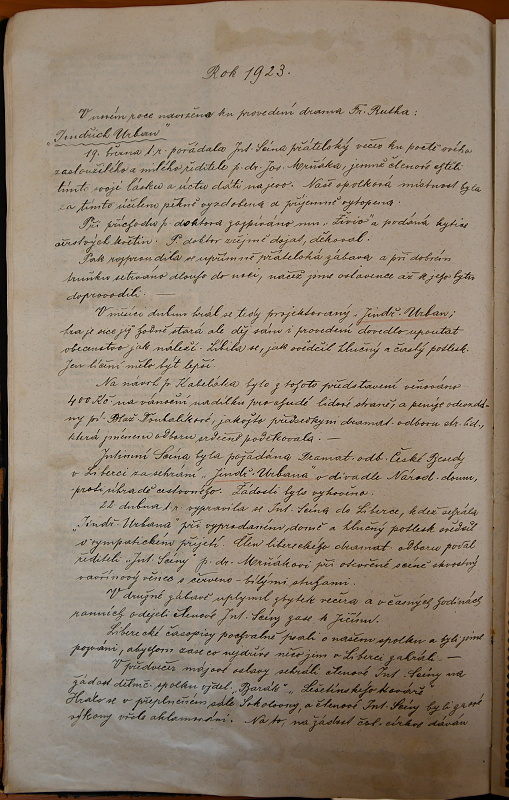 Rok 1923.
V novém roce navržena ku provedení drama Fr. Rutha:
"Jindřich Urban"
19. března t.r. pořádala Int. Scéna přátelský večer ku poctě svého
zasloužilého a milého ředitele p. dr. Jos. Mrňáka, jemuž členové chtěli
tímto svoji lásku a úctu dáti najevo. Naše spolková místnost byla
za tímto účelem pěkně vyzdobena a příjemně vytopena.
Při příchodu p. doktora zazpíváno mu "Živio" a podána kytice
čerstvých květin. P. doktor zřejmě dojat, děkoval.
Pak rozproudila se upřímně přátelská zábava a při dobrém
truňku setrváno dlouho do noci, načež jsme oslavence až k jeho bytu
doprovodili. —
V měsíci dubnu hrál se tedy projektovaný "Jindř. Urban;
hra je sice již hodně stará ale děj sám i provedení dovedlo upoutat
obecenstvo jak náleží. Líbila se, jak svědčil hlučný a častý potlesk.
Jen líčení mělo být lepší
Na návrh p. Kabeláka bylo z tohoto představení věnováno
400 Kč na vánoční nadílku pro chudé lidové straně, a peníze odevzdá-
ny pí. Blaž. Koubalíkové, jakožto předsedkyni dramat. odboru str. lid.,
která jménem odboru srdečně poděkovala. —
Intimní Scéna byla požádána Dramat. odb. České Besedy
v Liberci za sehrání "Jindř. Urbana" v divadle Národ. domu,
proti úhradě cestovného. Žádosti bylo vyhověno.
22. dubna t.r. vypravila se Int. Scéna do Liberce, kdež sehrála
"Jindř. Urbana" při vyprodaném domě a hlučný potlesk svědčil
o sympatickém přijetí. Člen libereckého dramat. odboru podal
řediteli "Int. Scény" p. dr. Mrňákovi při otevřené scéně skvostný
vavřínový věnec s červeno-bílými stuhami.
V družné zábavě uplynul zbytek večera a v časných hodinách
ranních odejeli členové Int. Scény zase k Jičínu.
Liberecké časopisy pochvalně psaly o našem spolku a byli jsme
pozváni, abychom zase co nejdříve něco jim v Liberci zahráli. —
V předvečer májové oslavy sehráli členové Int. Scény na
žádost dělnic. spolku vzděl. "Barák" "Lešetínského kováře"
Hrálo se v přeplněném sále Sokolovny, a členové Int. Scény byli za své
výkony vřele aklamováni. Na to, na žádost čsl. církve dáván